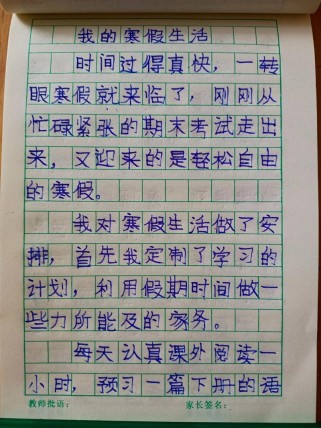 我的寒假生活
时间过得真快，一转
眼寒假就来临了，刚刚从
忙碌紧张的期末考试走出
来，又迎来的是轻松自由
的寒假。
我对寒假生活做了安
排，首先我定制了学习的
计划，利用假期时间做一
些力所能及的家务。
每天认真课外阅读一
小时，预习一篇下册的语
教师批语： 家长签名：